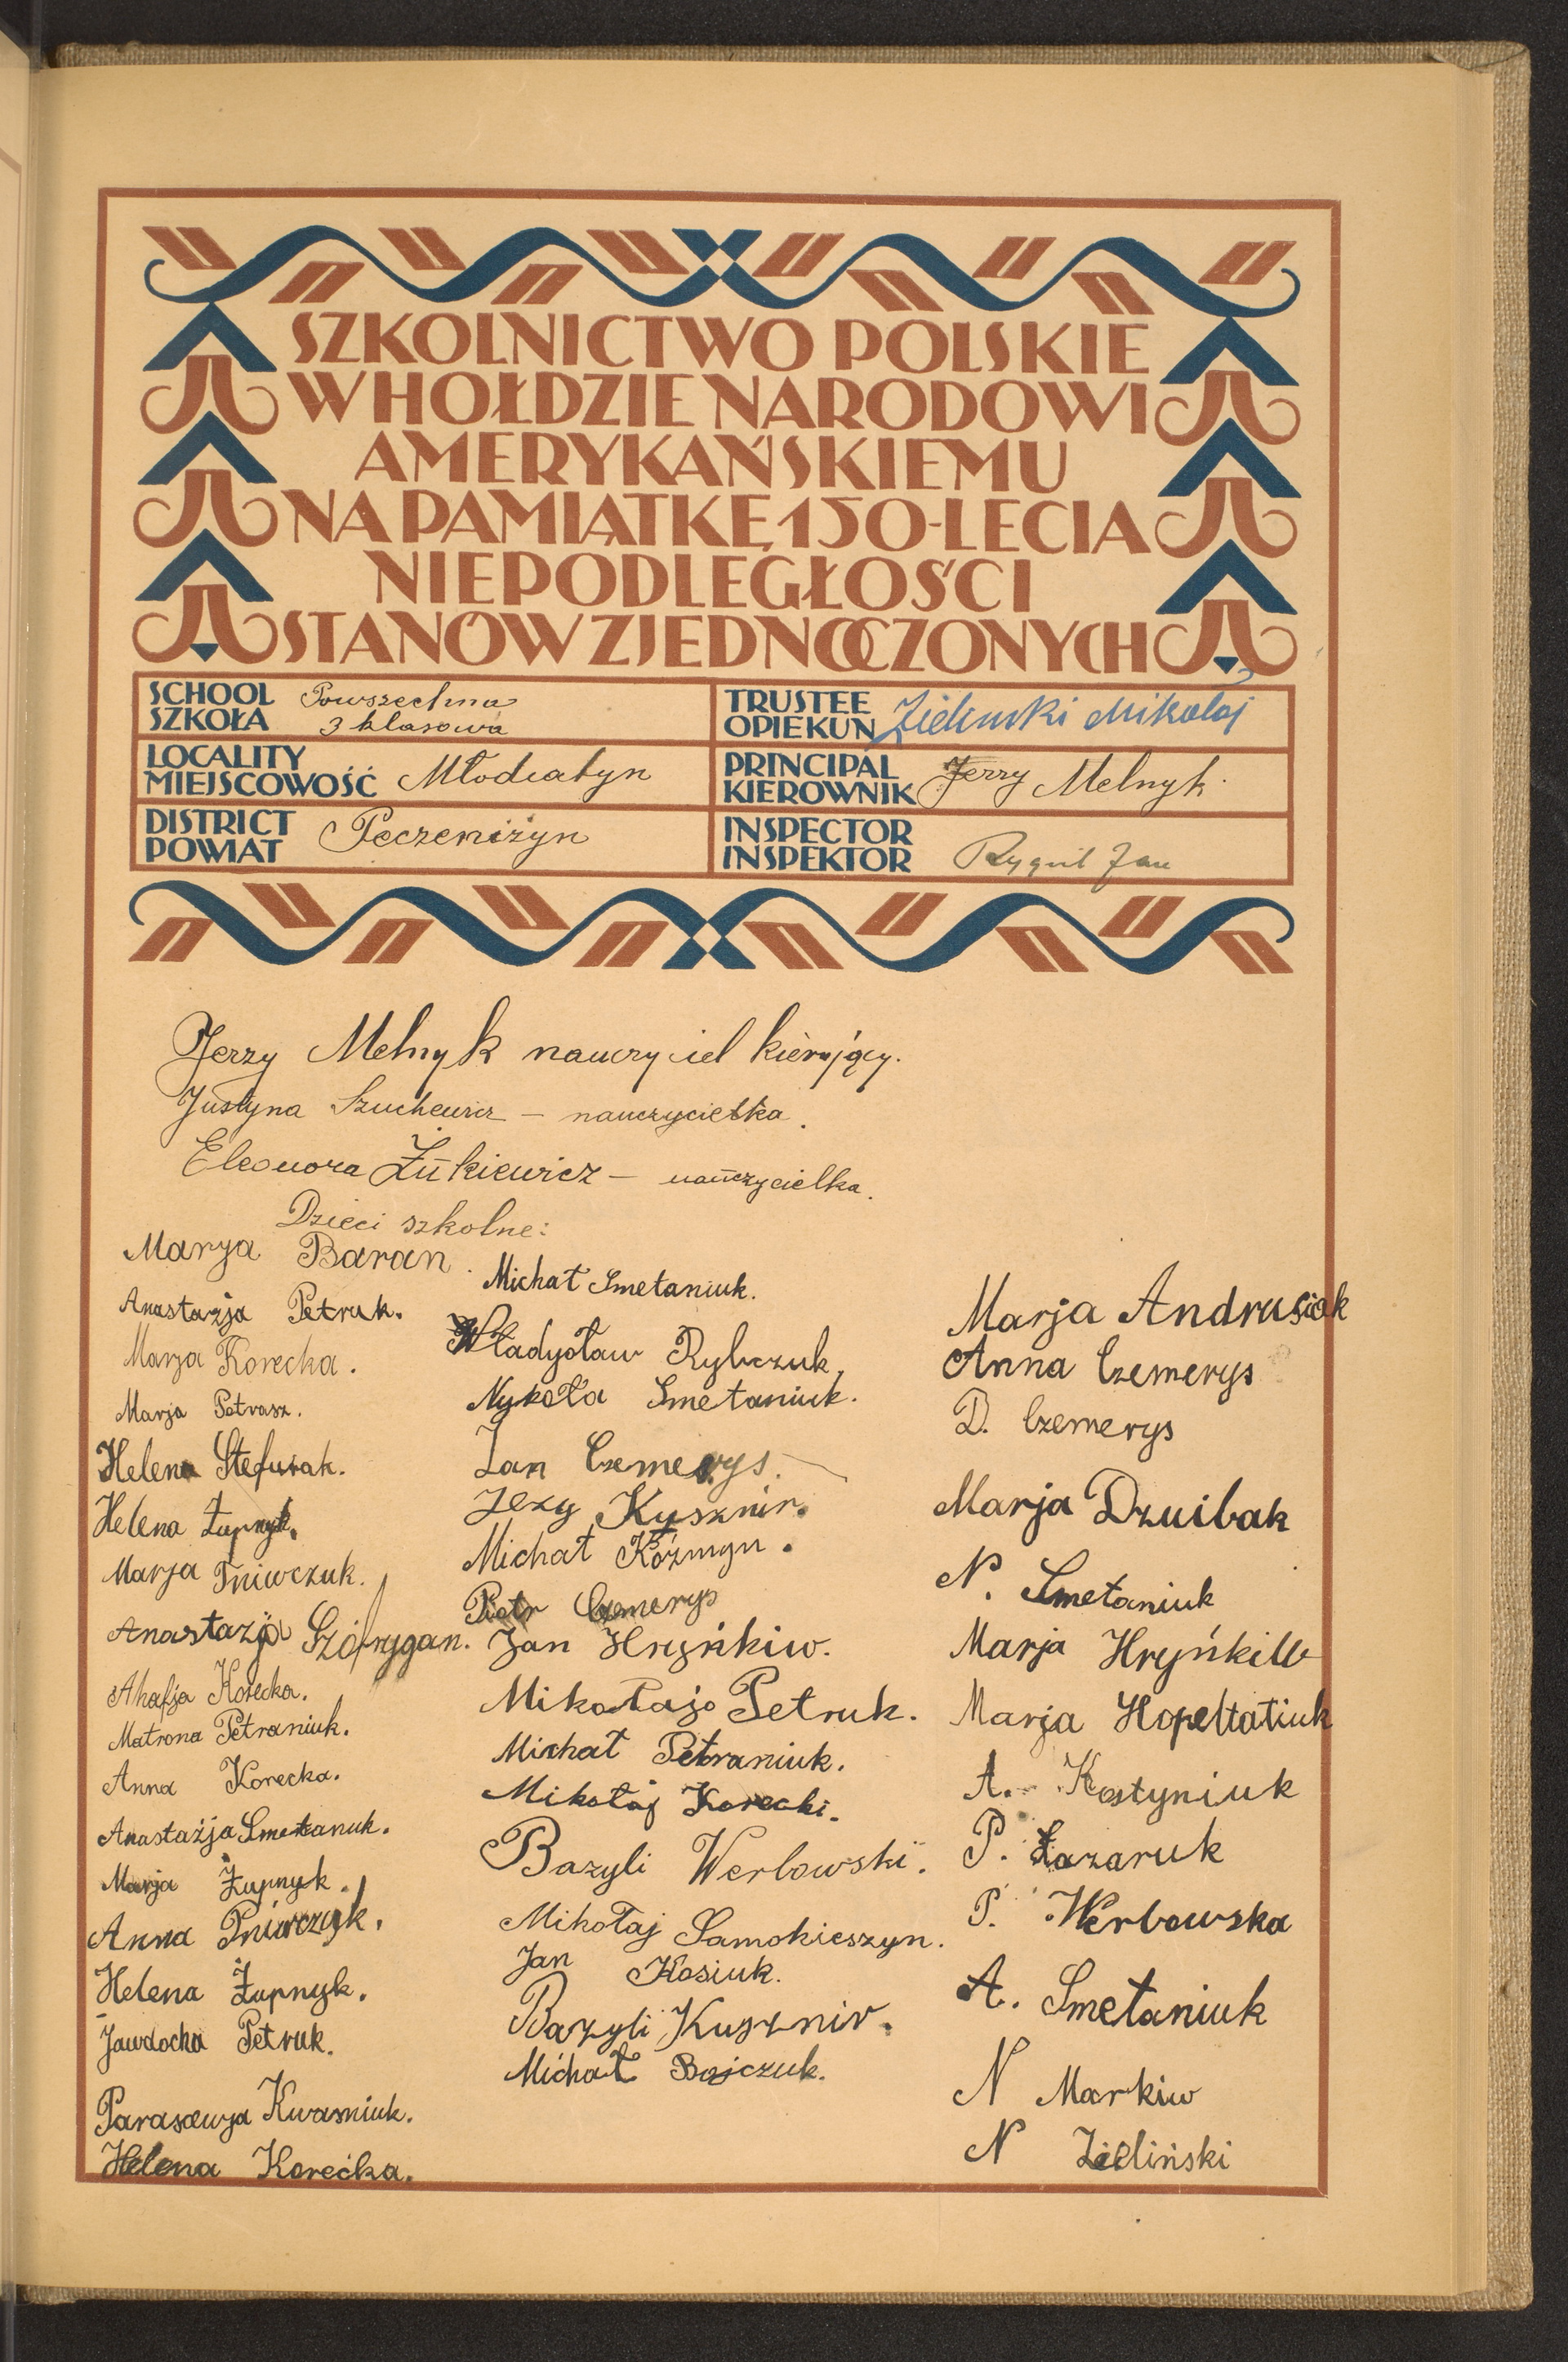 SZKOLNICTWO POLSKIE
W HOŁDZIE NARODOWI
AMERYKAŃSKIEMU
NA PAMIĄTKĘ 150-LECIA
NIEPODLEGŁOŚCI
STANÓW ZJEDNOCZONYCH
SCHOOL
SZKOŁA
Powszechna
3 klasowa
TRUSTEE
OPIEKUN
Zieliński Mikołaj
LOCALITY
MIEJSCOWOŚĆ
Młodiatyn
PRINCIPAL
KIEROWNIK
Jerzy Melnyk
DISTRICT
POWIAT
Peczeniżyn
INSPECTOR
INSPEKTOR
Jan
Jerzy Melnyk nauczyciel kierujący.
Justyna Szuchewicz – nauczycielka.
Eleonora Żukiewicz – nauczycielka.
Dzieci szkolne:
Marya Baran.
Anastazja Petruk.
Marja Korecka.
Marja Petrasz.
Helena Stefurak.
Helena Żupnyk.
Marja Pniwczuk.
Anastazja
Ahafja Korecka.
Matrona Petraniuk.
Anna Korecka.
Anastazja Smetanuk.
Marja Żupnyk.
Anna Pniwczuk.
Helena Żupnyk.
Jawdocha Petruk.
Parasewja Kwasniuk.
Helena Korećka.
Michał Smetaniuk.
Władysław Rybczuk,
Nykoła Smetaniuk.
Jan Czemerys.
Jezy Kysznir.
Michał Koźmyn.
Piotr Czemerys
Jan Hryńkiw.
Mikołajo Petruk.
Michał Petraniuk.
Mikołaj Korecki.
Bazyli Werbowski.
Mikołaj Samokieszyn.
Jan Kosiuk.
Bazyli Kusznir.
Michał Bojczuk.
Marja Andrusiak
Anna Czemerys
D. Czemerys
Marja Dzuibak
N. Smetaniuk
Marja Hryńkiw
Marja
A. Kostyniuk
P. Łazaruk
P. Werbowska
A. Smetaniuk
N Markiw
N Zieliński